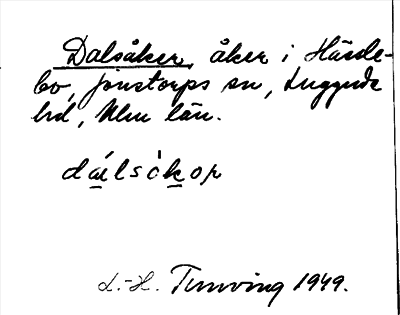 Dalsåker, åker i Härde-
bo, Jonstorps sn, Luggude
hd, Mlm län.
dálsòkor
L.-H. Tunving 1949.